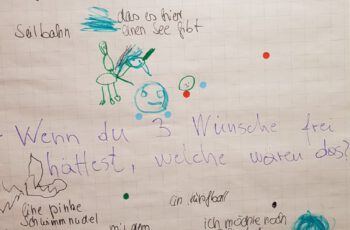 Seilbahn
das es hier
einen See gibt
- Wenn du 3 Wünsche frei
hättest, welche wären das?
eine pinke
Schwimmnudel
mit dem
ein
ich möchte noch